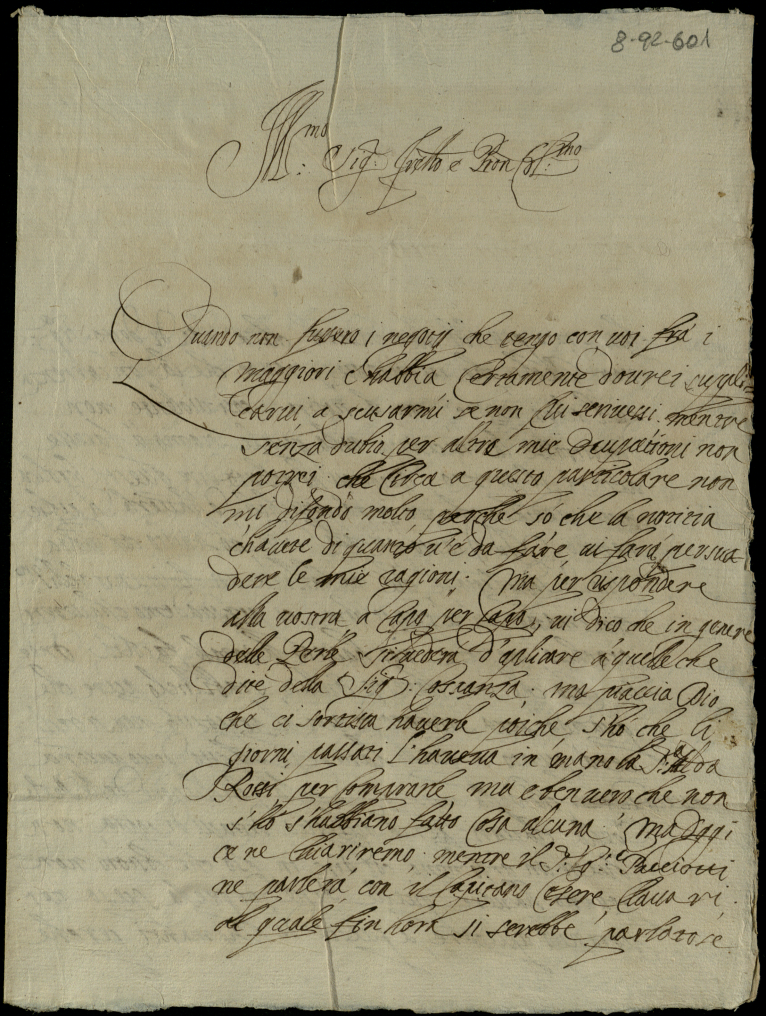 8-92-601
Ill.mo Sig.r e Pron Col.mo
Quando non fussero i negotij che tengo con voi frà i
maggiori c'habbia certamente dourei suppli
carui a scusarmi se non gli scriuessi mentre
senza dubio per altre mie occupationi non
potrei che circa a questo particolare non
mi difondo molto perche só che la notitia
c'hauete di quanto u'é da fare ui fará persua
dere le mie ragioni. Ma per rispondere
alla uostra a Capo per Capo, ui dico che in genere
delle Perle d'aplicare á quelle che
dite della Sig.ra Costanza ma piaccia Dio
che ci sortisca hauerle poiche s'hó che li
giorni passati l'haueua in mano la S.ra Alda
Rossi per comprarle ma e ben uero che non
s'hó s'habbiano fatto cosa alcuna. Ma oggi
ce ne chiariremo mentre il Pacciotti
ne parlerá con il Capitano Cesere Clauari
al quale fin hora si serebbe parlato sé